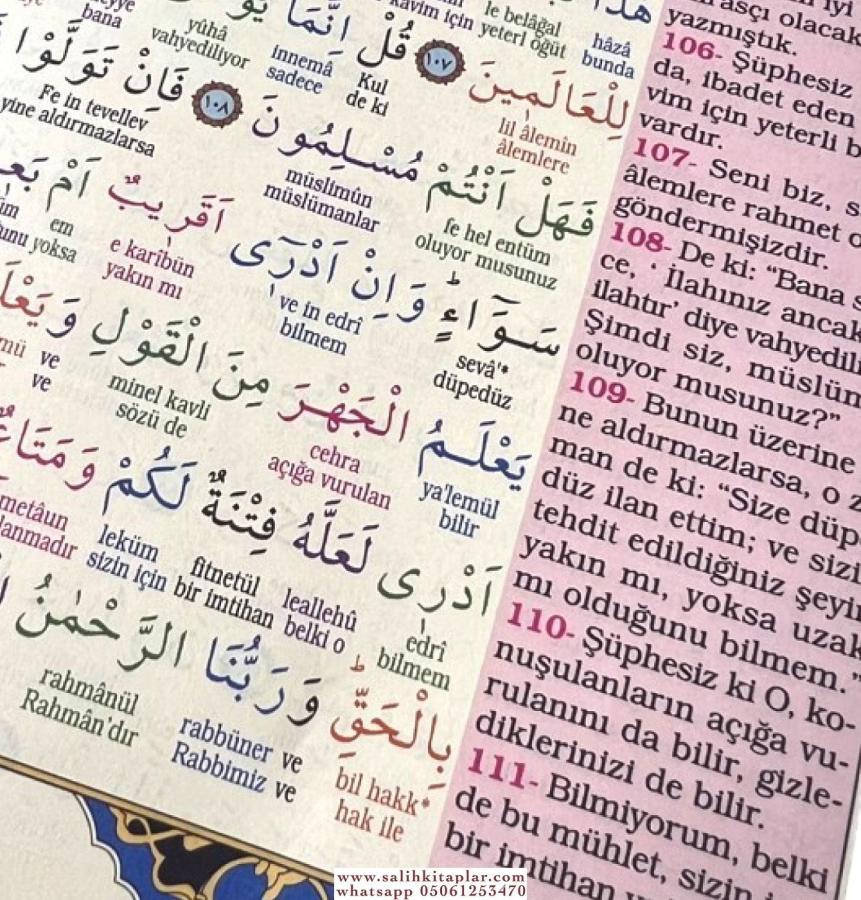 هٰذَا
hâzâ
bunda
le belâğal
yeterl öğüt
kavim için
لِلْعَالَمٖينَ ﴿١٠٧﴾ قُلْ اِنَّمَا
lil âlemîn Kul innemâ yûhâ
âlemlere de ki sadece vahyediliyor
bana
فَهَلْ اَنْتُمْ مُسْلِمُونَ ﴿١٠٨﴾ فَاِنْ تَوَلَّوْا
fe hel entüm müslimûn Fe in tevellev
oluyor musunuz müslümanlar yine aldırmazlarsa
سَوَٓاءٍ وَاِنْ اَدْرٖٓى اَقَرٖيبٌ اَمْ
sevâ'* ve in edrî e karîbün em
düpedüz bilmem yakın mı yoksa
يَعْلَمُ الْجَهْرَ مِنَ الْقَوْلِ وَ
ya'lemül cehra minel kavli ve
bilir açığa vurulan sözü de ve
اَدْرٖى لَعَلَّهُ فِتْنَةٌ لَكُمْ وَمَتَاعٌ
edrî leallehû fitnetül leküm metâun
bilmem belki o bir imtihan sizin için
بِالْحَقِّ وَرَبُّنَا الرَّحْمٰنُ
bil hakk* rabbüner ve rahmânül
hak ile Rabbimiz ve Rahmân'dır
asçı olacak
yazmıştık.
106- Şüphesiz
da, ibadet eden
vim için yeterli b
vardır.
107- Seni biz, s
âlemlere rahmet o
göndermişizdir.
108- De ki: “Bana s
ce, ‘ İlahınız ancak
ilahtır’ diye vahyedili
Şimdi siz, müslüm
oluyor musunuz?”
109- Bunun üzerine
ne aldırmazlarsa, o z
man de ki: “Size düp
düz ilan ettim; ve sizi
tehdit edildiğiniz şeyi
yakın mı, yoksa uzak
mı olduğunu bilmem.”
110- Şüphesiz ki O, ko-
nuşulanların açığa vu-
rulanını da bilir, gizle-
diklerinizi de bilir.
111- Bilmiyorum, belki
de bu mühlet, sizin
bir imtihan
www.salihkitaplar.com
whatsapp 05061253470